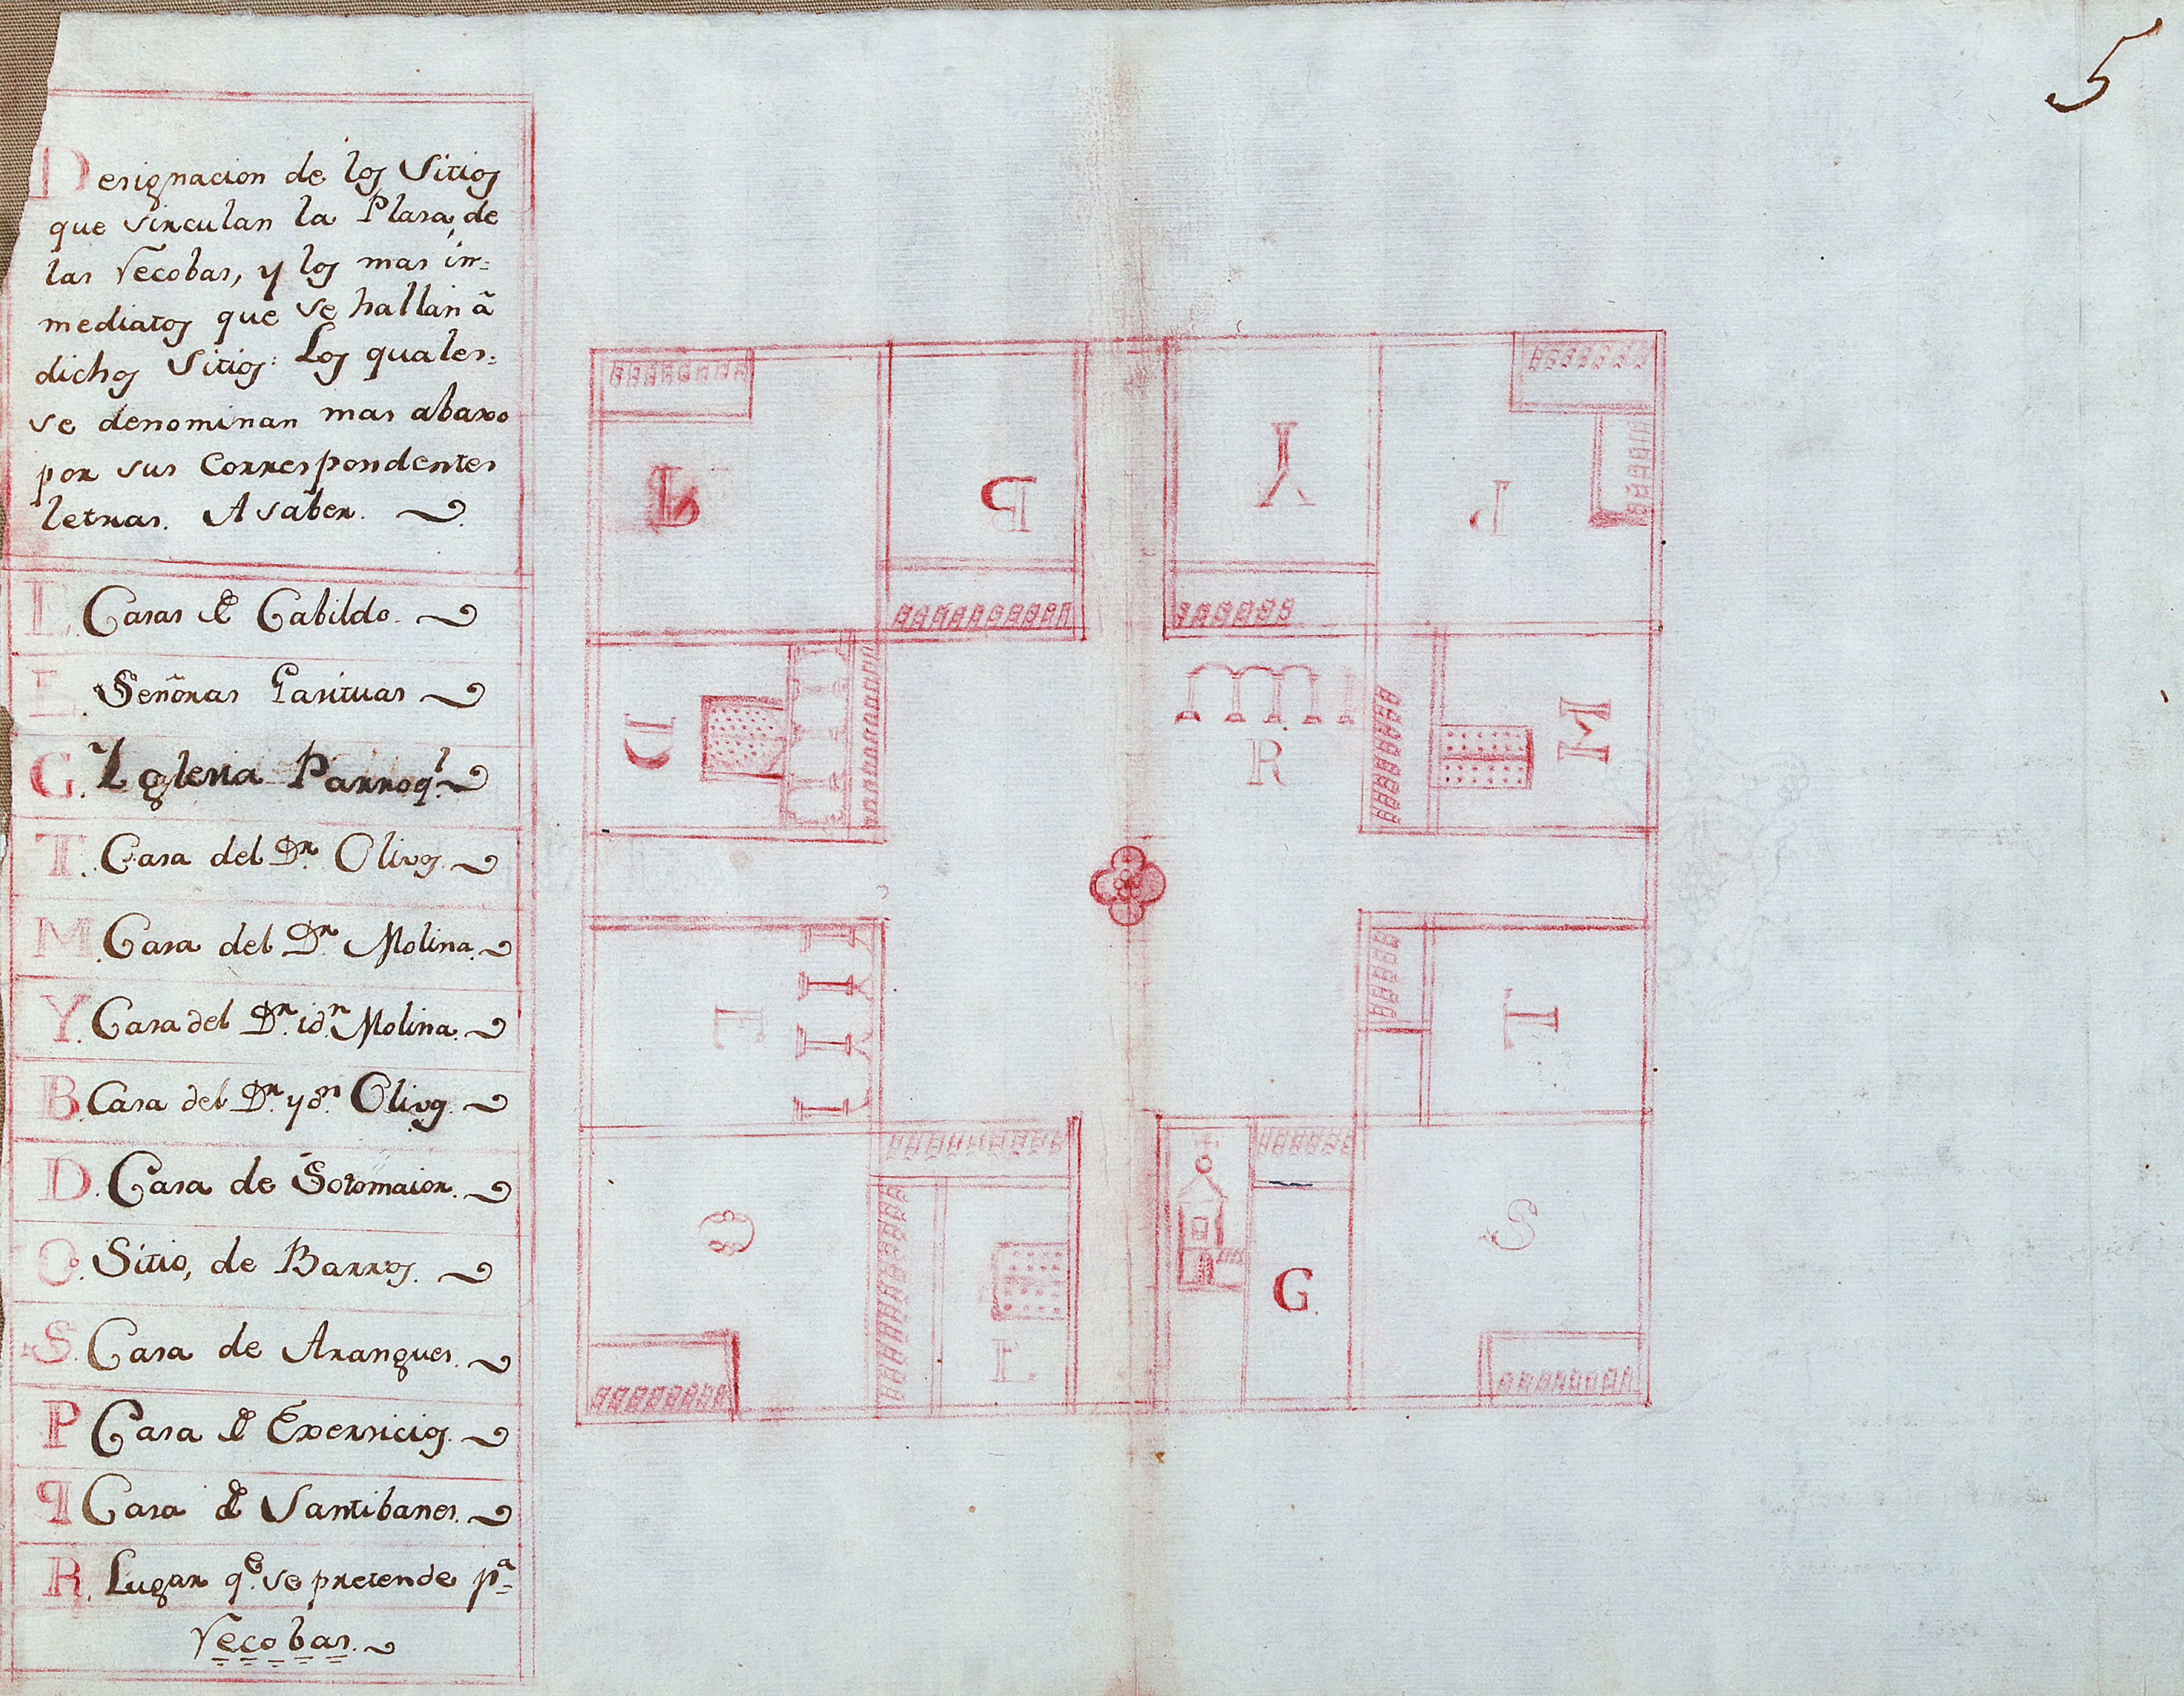 5
Designacion de los Sitios
que vinculan la Plasa, de
las Recobas, y los mas in=
mediatos que se hallan â
dichos Sitios: Los quales=
se denominan mas abaxo
por sus Correspondentes
letras. A saber.
L. Casas de Cabildo.
E. Señoras Garituas
G. Yglesia Parroql.
T. Casa del Dr. Olivos.
M. Casa del Dr. Molina.
Y. Casa del Dr. idn. Molina.
B. Casa del Dr. ydn. Olivos.
D. Casa de Sotomaior.
O. Sitio, de Barros.
S. Casa de Arangues.
P Casa de Exersicios.
q Casa de Santibanes.
R. Lugar qe. se pretende pa=
Recobas.
q
B
Y
P
D
R
M
L
T
O
E.
G.
S